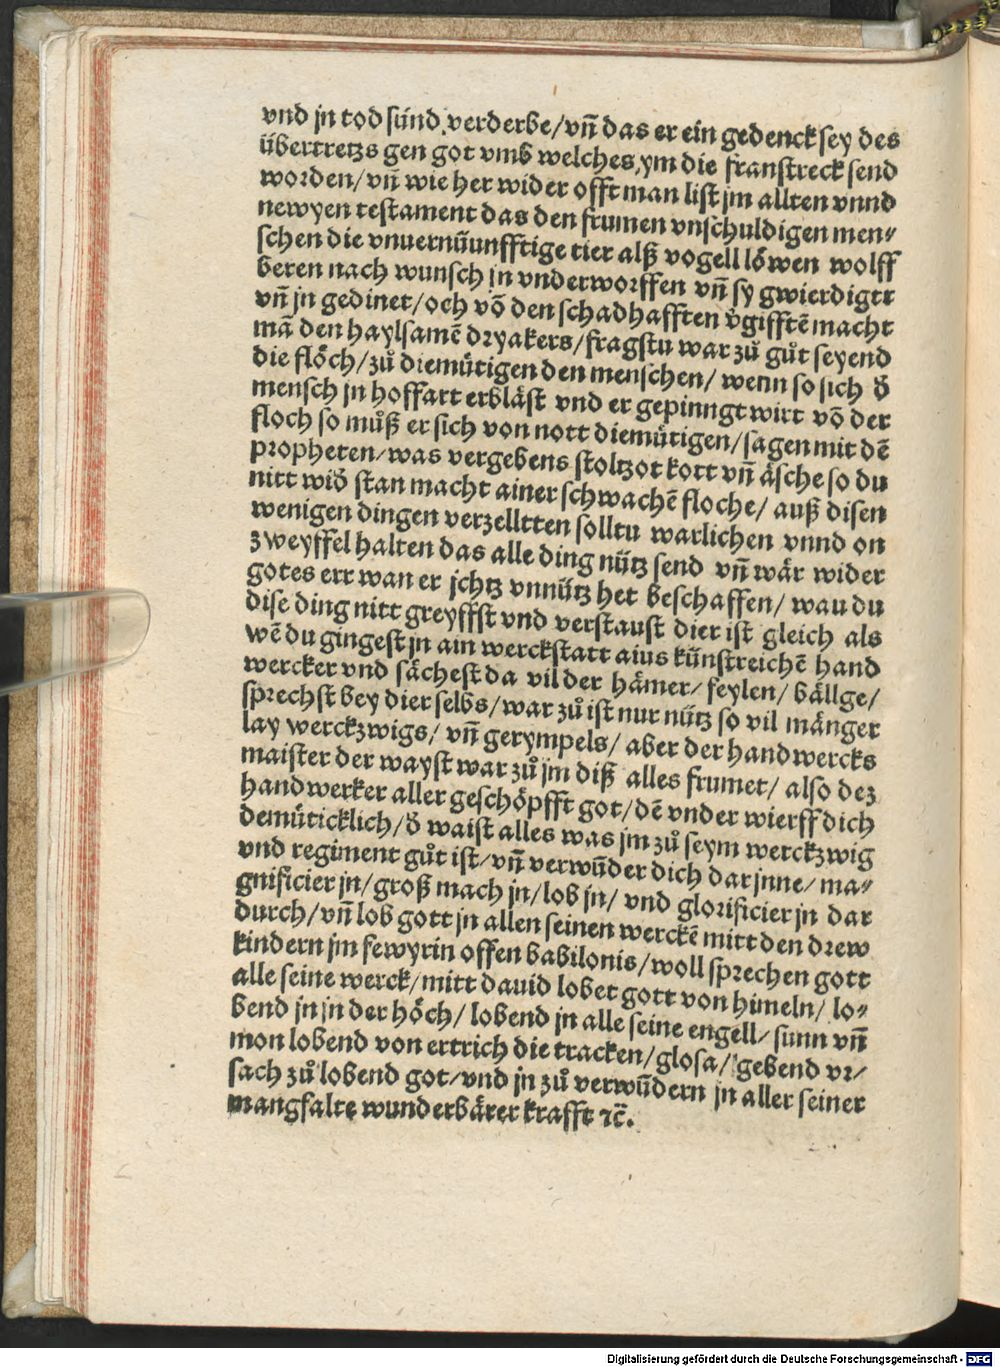 vnd jn tod sünd verderbe/vn̄ das er ein gedenck sey des
übertretzs gen got vmb welches ym die franstreck send
worden/vn̄ wie her wider offt man list jm allten vnnd
newyen testament das den frumen vnschuldigen men⸗
schen die vnuernüunfftige tier alß vogell löwen wolff
beren nach wunsch jn vnderworffen vn̄ sy gwierdigtt
vn̄ jn gedinet/och vō den schadhafften v̊gifftē macht
mā den haylsamē dryakers/fragstu war zů gůt seyend
die flöch/zů diemütigen den menschen/wenn so sich d̕
mensch jn hoffart erbläst vnd er gepinngt wirt vō der
floch so můß er sich von nott diemütigen/sagen mit dē
propheten/was vergebens stoltzot kott vn̄ äsche so du
nitt wid̕ stan macht ainer schwachē floche/auß disen
wenigen dingen verzelltten solltu warlichen vnnd on
zweyffel halten das alle ding nütz send vn̄ wär wider
gotes err wan er jchtz vnnütz het beschaffen/wau du
dise ding nitt greyffst vnd verstaust dier ist gleich als
wē du gingest jn ain werckstatt aius künstreichē hand
wercker vnd sächest da vil der hämer/feylen/bällge/
sprechst bey dier selbs/war zů ist nur nütz so vil mänger
lay werckzwigs/vn̄ gerympels/aber der handwercks
maister der wayst war zů jm diß alles frumet/also dez
handwerker aller geschöpfft got/dē vnder wierff dich
demüticklich/d̕ waist alles was jm zů seym werckzwig
vnd regiment gůt ist/vn̄ verwūder dich dar jnne/ma⸗
gnificier jn/groß mach jn/lob jn/vnd glorificier jn dar
durch/vn̄ lob gott jn allen seinen werckē mitt den drew
kindern jm fewyrin offen babilonis/woll sprechen gott
alle seine werck/mitt dauid lobet gott von himeln/lo⸗
bend jn jn der höch/lobend jn alle seine engell/sunn vn̄
mon lobend von ertrich die tracken/glosa/gebend vr⸗
sach zů lobend got/vnd jn zů verwūdern jn aller seiner
mangfalte wunderbärer krafft ⁊c̄.
Digitalisierung gefördert durch die Deutsche Forschungsgemeinschaft - DFG